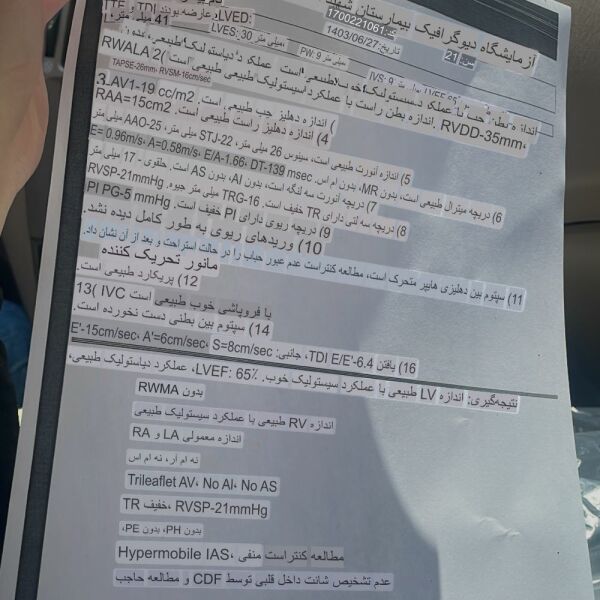 TTE و TDI بودند وعارضه
LVED: 41 میلی متر
آزمایشگاه دیوگرافیک بیمارستان
کت: 1700221061
تاریخ: 1403/06/27
سن: 21
LVES: 30 میلی متر،
PW: 9 میلی متر،
IVS: 9 میلی متر
RWALA 2( است طبیعی
TAPSE-26mm، RVSM-16cm/sec
اندازه بطن راست با عملکرد سیستولیک طبیعی RVDD-35mm،
3.AV1-19 cc/m2 .اندازه دهلیز چپ طبیعی است (
RAA=15cm2 .اندازه دهلیز راست طبیعی است (4
5) اندازه آئورت طبیعی است، سینوس 26 میلی متر، STJ-22 میلی متر، AAO-25 میلی متر
6) دریچه میترال طبیعی است، بدون MR، بدون ام اس. E= 0.96m/s، A=0.58m/s، E/A-1.66، DT-139 msec
7) دریچه آئورت سه لنگه است، بدون AI، بدون AS است. حلقوی - 17 میلی متر
8) دریچه سه لتی دارای TR خفیف است. TRG-16 میلی متر جیوه. RVSP-21mmHg
9) دریچه ریوی دارای PI خفیف است. PI PG-5 mmHg
10) وریدهای ریوی به طور کامل دیده نشد.
11) سپتوم بین دهلیزی هایپر متحرک است، مطالعه کنتراست عدم عبور حباب را در حالت استراحت و بعد از آن نشان داد.
مانور تحریک کننده
12) پریکارد طبیعی است.
13( IVC با فروپاشی خوب طبیعی است
14) سپتوم بین بطنی دست نخورده است.
16) بافتی TDI E/E'-6.4، جانبی: E'-15cm/sec، A'=6cm/sec، S=8cm/sec
نتیجه‌گیری: اندازه LV طبیعی با عملکرد سیستولیک خوب. LVEF: 65٪، عملکرد دیاستولیک طبیعی،
بدون RWMA
اندازه RV طبیعی با عملکرد سیستولیک طبیعی
اندازه معمولی LA و RA
نه ام آر، نه ام اس
Trileaflet AV، No AI، No AS
TR خفیف، RVSP-21mmHg
بدون PH، بدون PE،
Hypermobile IAS، مطالعه کنتراست منفی
عدم تشخیص شانت داخل قلبی توسط CDF و مطالعه حاجب